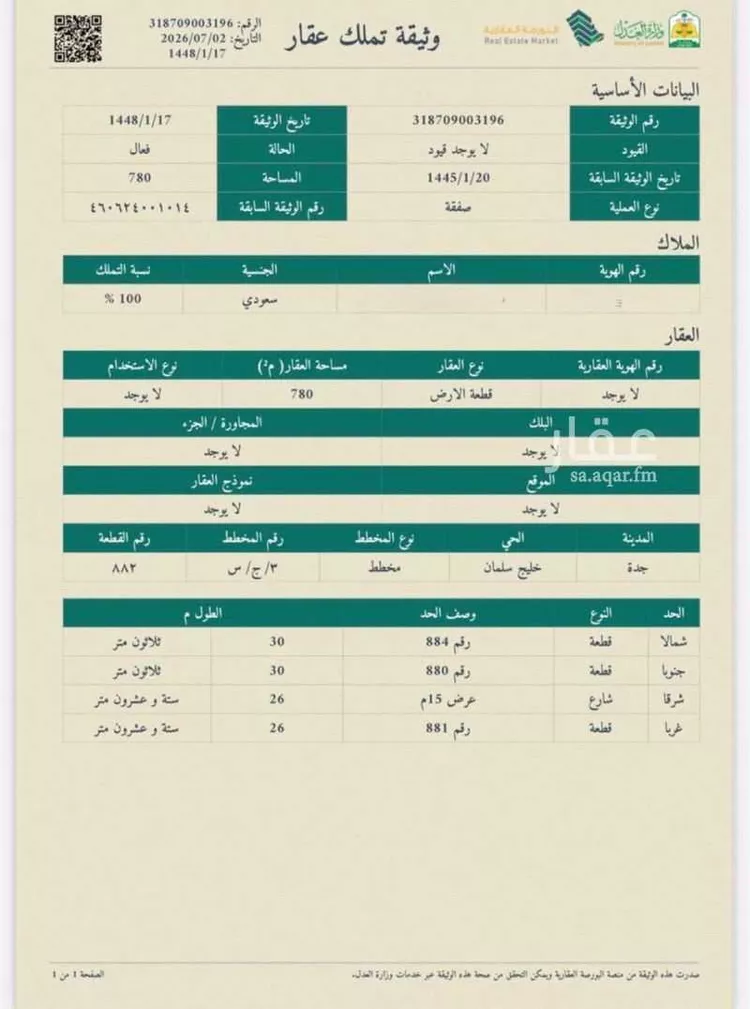 وزارة العدل
MINISTRY OF JUSTICE
البورصة العقارية
Real Estate Market
وثيقة تملك عقار
الرقم: 318709003196
التاريخ: 2026/07/02
1448/1/17
البيانات الأساسية
رقم الوثيقة 318709003196 تاريخ الوثيقة 1448/1/17
القيود لا يوجد قيود الحالة فعال
تاريخ الوثيقة السابقة 1445/1/20 المساحة 780
نوع العملية صفقة رقم الوثيقة السابقة ٤٦٠٦٢٤٠٠١٠١٤
الملاك
رقم الهوية الاسم الجنسية نسبة التملك
سعودي 100 %
العقار
رقم الهوية العقارية نوع العقار مساحة العقار( م²) نوع الاستخدام
لا يوجد قطعة الارض 780 لا يوجد
البلك المجاورة / الجزء
لا يوجد لا يوجد
عقار
sa.aqar.fm
الموقع نموذج العقار
لا يوجد لا يوجد
المدينة الحي نوع المخطط رقم المخطط رقم القطعة
جدة خليج سلمان مخطط ٣/ ج/ س ٨٨٢
الحد النوع وصف الحد الطول م
شمالا قطعة رقم 884 30 ثلاثون متر
جنوبا قطعة رقم 880 30 ثلاثون متر
شرقا شارع عرض 15م 26 ستة و عشرون متر
غربا قطعة رقم 881 26 ستة و عشرون متر
صدرت هذه الوثيقة من منصة البورصة العقارية ويمكن التحقق من صحة هذه الوثيقة عبر خدمات وزارة العدل.
الصفحة 1 من 1